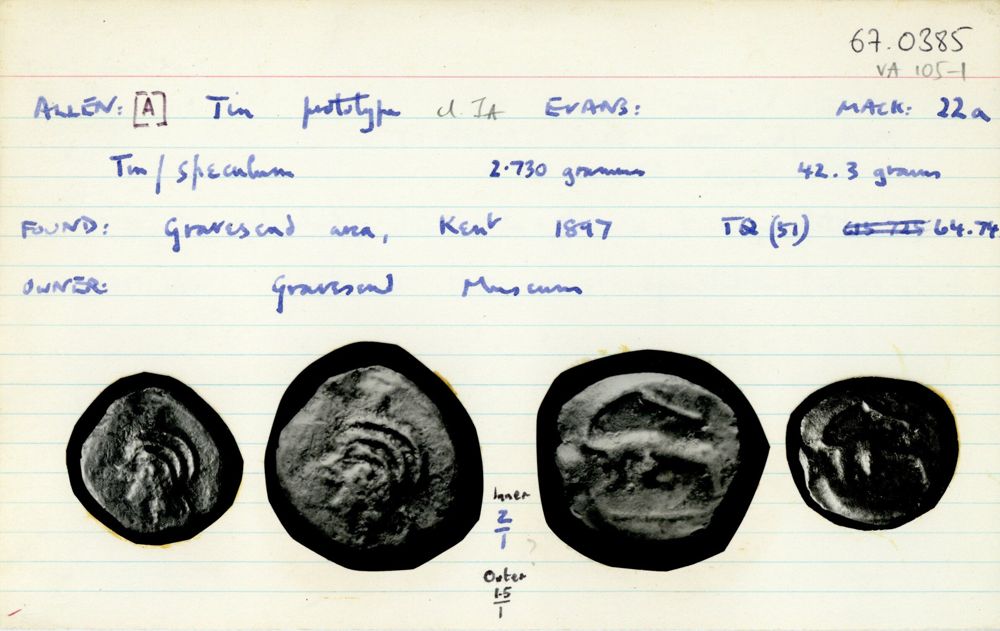 67.0385
VA 105-1
ALLEN: [A] Tin prototype cl. IA EVANS: MACK: 22a
Tin/speculum 2.730 grammes 42.3 grains
FOUND: Gravesend area, Kent 1897 TQ (51) 615 725 64.74
OWNER: Gravesend Museum
Inner
2
1
Outer
1.5
1